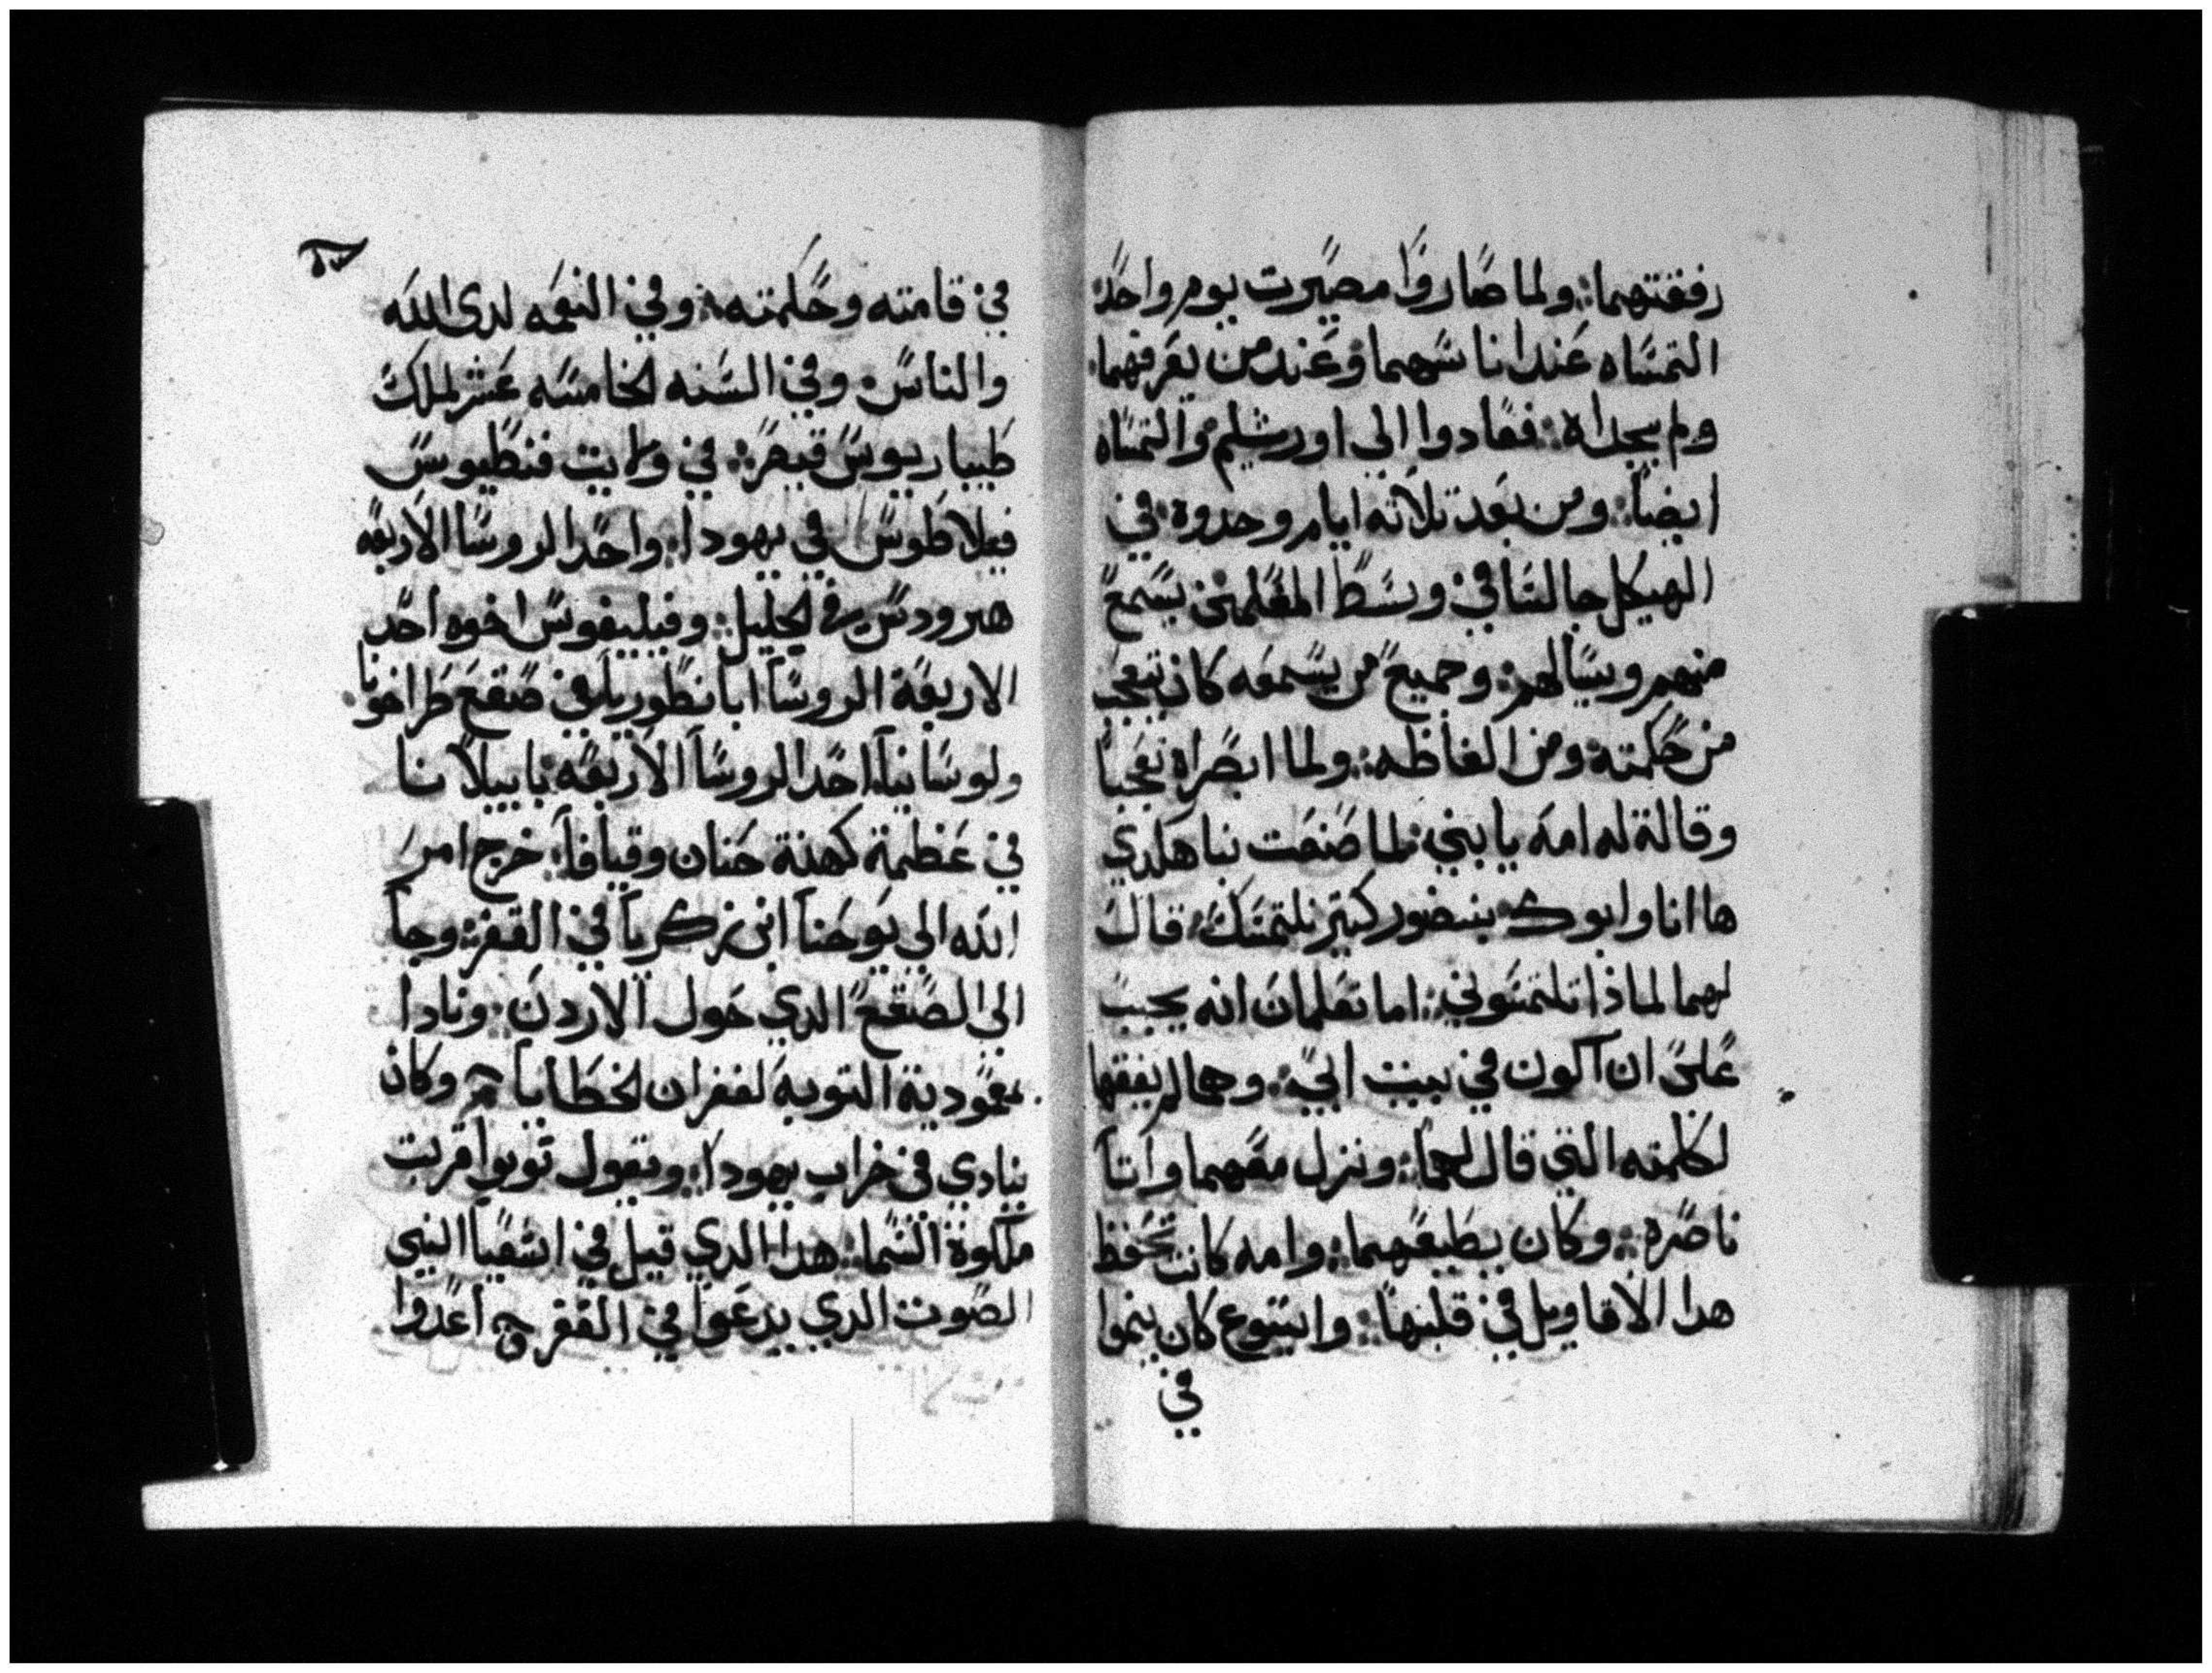 رفقتهما ولما صاروا مصيرت يوم واحد
التمساه عند اناسهما وعند من يعرفهما
ولم يجداه فعادوا الى اورشليم والتمساه
ايضا ومن بعد تلاتة ايام وجدوة في
الهيكل جالسا في وسط المعلمين يسمع
منهم ويسالهم وجميع من يسمعه كان يتعجب
من حكمته ومن الفاظه ولما ابصراه تعجبا
وقالة له امه يا بني لما صنعت بنا هكدي
ها انا وابوك بنضور كتير نلتمسك قال
لهما لماذا تلتمسوني اما تعلمان انه يجب
على ان اكون في بيت ابي وهما لم يفقها
لكلمته التي قال لهما ونزل معهما واتا
ناصره وكان يطيعهما وامه كانت تحفظ
هدا الاقاويل في قلبها وايسوع كان ينموا
في
في قامته وحكمته وفي النعمه لدى الله
والناس وفي السنه الخامسه عشر لملك
طيباريوس قيصر في ولايت فنطيوس
فيلاطوس في يهودا واحد الروسا الاربعه
هيرودس في الجليل وفيليفوس اخوه احد
الاربعة الروسا ابانطوريا في صقع طراخونا
ولوسانيا احد الروسا الاربعه بابيلانا
في عظمة كهنة حنان وقيافا خرج امر
الله الى يوحنا ابن زكريا في القفر وجا
الى الصقع الدي حول الاردن ونادا
بمعمودية التوبة لغفران الخطايا وكان
ينادي في خراب يهودا ويقول توبوا قربت
ملكوة السما هدا الدي قيل في اشعيا النبي
الصوت الدي يدعوا في القفر اعدوا